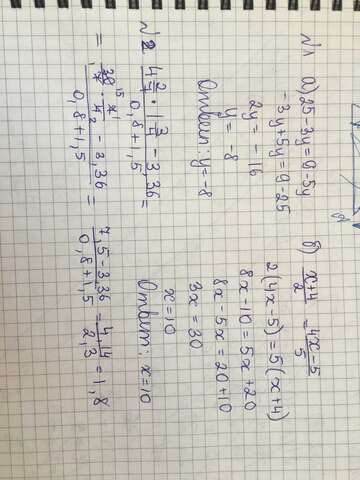 №1
а) 25-3y=9-5y
-3y+5y=9-25
2y = -16
y = -8
Ответ: y=-8
б) x+4/2 = 4x-5/5
2(4x-5)=5(x+4)
8x-10=5x+20
8x-5x=20+10
3x=30
x=10
Ответ: x=10
№2
4 2/7 · 1 3/4 - 3,36 / 0,8+1,5 =
= 30/7 · 7/4 - 3,36 / 0,8+1,5 = 7,5-3,36 / 0,8+1,5 = 4,14/2,3 = 1,8